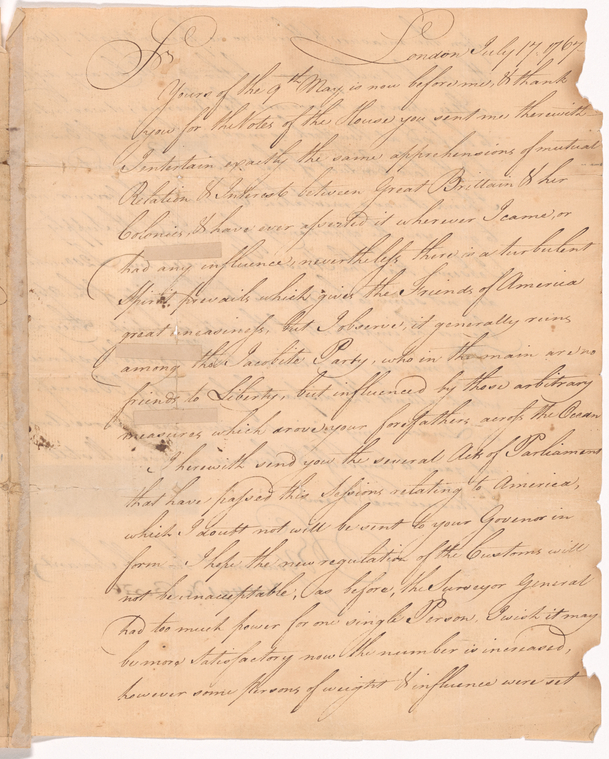 Sir London July 17. 1767
Yours of the 9th May, is now before me, & thank
you for the Votes of the House you sent me therewith
I entertain exactly the same apprehensions of mutual
Relation & Interest between Great Brittain & her
Colonies, & have ever asserted it wherever I came, or
had any influence, nevertheless there is a turbulent
Spirit prevails which gives the Friends of America
great uneasiness, but I observe, it generally runs
among the Jacobite Party, who in the main are no
friends to Liberty, but influenced by those arbitrary
measures which drove your forefathers across the Ocean
I herewith send you the several Acts of Parliament
that have passed this Sessions relating to America,
which I doubt not will be sent to your Govenor in
form. I hope the new regulation of the Customs will
not be unacceptable, as before, the Surveyor General
had too much power for one single Person, I wish it may
be more Satisfactory now the number is increased,
however some Persons of weight & influence were set